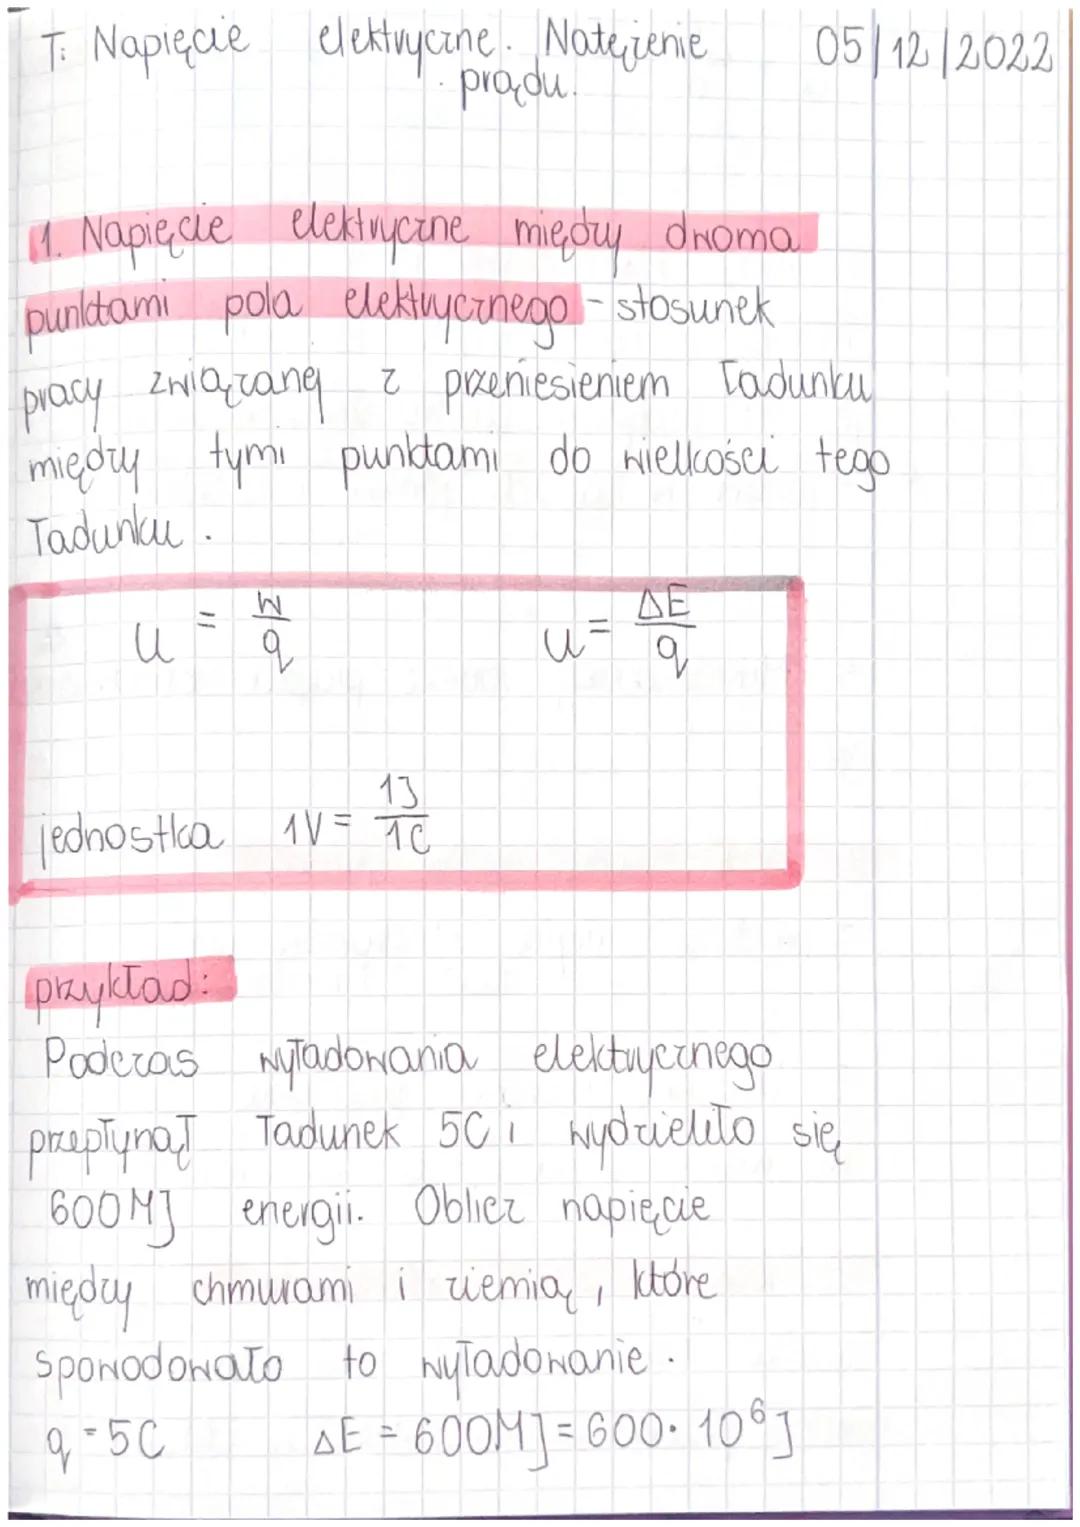 T: Napięcie elektryczne. Natężenie 05/12/2022
prądu.
1. Napięcie elektryczne między dwoma
punktami pola elektrycznego - stosunek
pracy związanej z przeniesieniem ładunku
między tymi punktami do wielkości tego
ładunku.
U = W/q U = ΔE/q
jednostka 1V = 1J/1C
przykład:
Podczas wyładowania elektrycznego
przepłynął ładunek 5C i wydzieliło się
600MJ energii. Oblicz napięcie
między chmurami i ziemią, które
spowodowało to wyładowanie.
q = 5C ΔE = 600MJ = 600·10⁶J